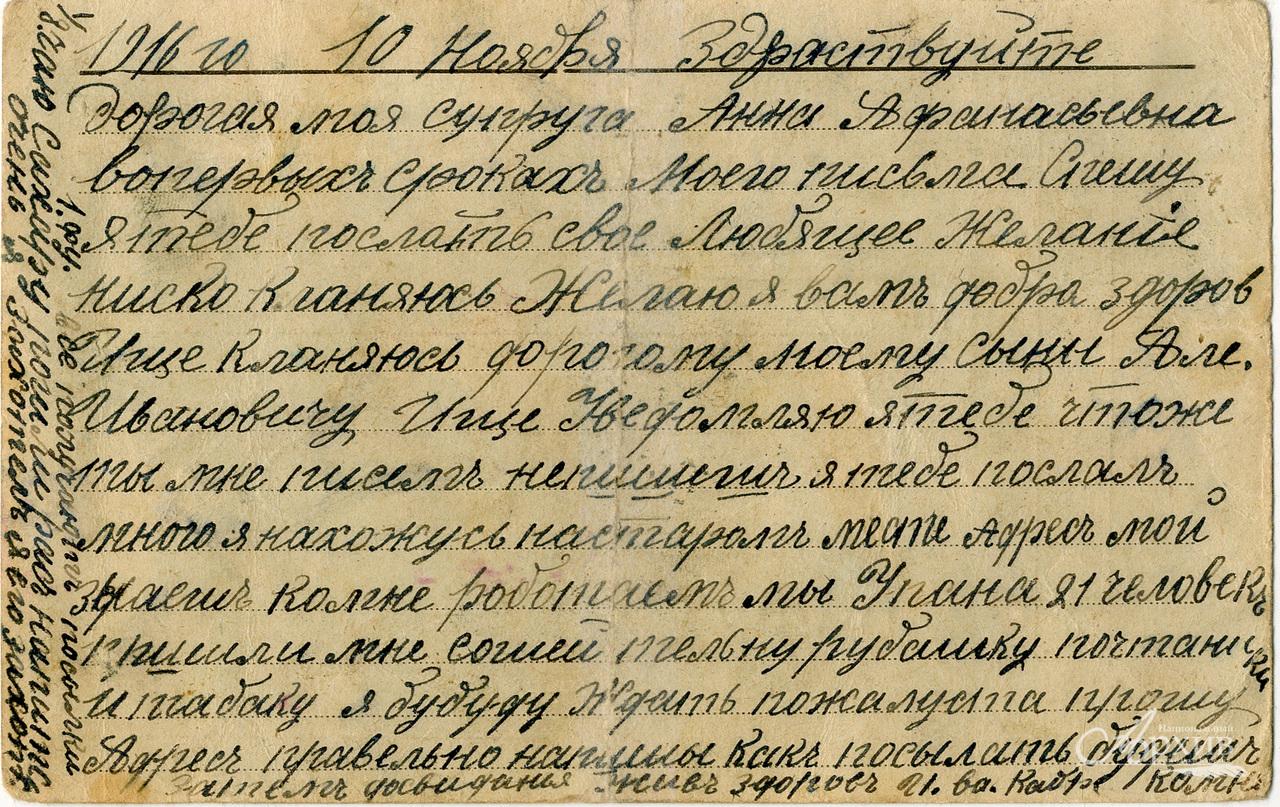 1916 го 10 Ноября Здраствуйте
Дорогая моя супруга Анна Афанасьевна
вопервыхъ срокахъ Моего письма Спешу
я тебе послать свое Любящее Желаніе
ниско кланяюсь Желаю я вамъ добра здоров
Ище кланяюсь дорогому моему сыну Але.
Ивановичу Ище Уведомляю я тебе чтоже
ты мне писемъ непишишъ я тебе послалъ
много я нахожусь настаромъ месте Адресъ мой
знаешъ комне роботаемъ мы Упана 21 человекъ
мне сошей тельну рубашку почтани
и табаку я бубуду Ждать пожалуста прошу
Адресъ правельно напишы какъ посылать будишъ
Затемъ довиданья живъ здоровъ комне
1. фу.
все получаютъ посылки
Сахару
очень я захотелъ
Национальный
Архив